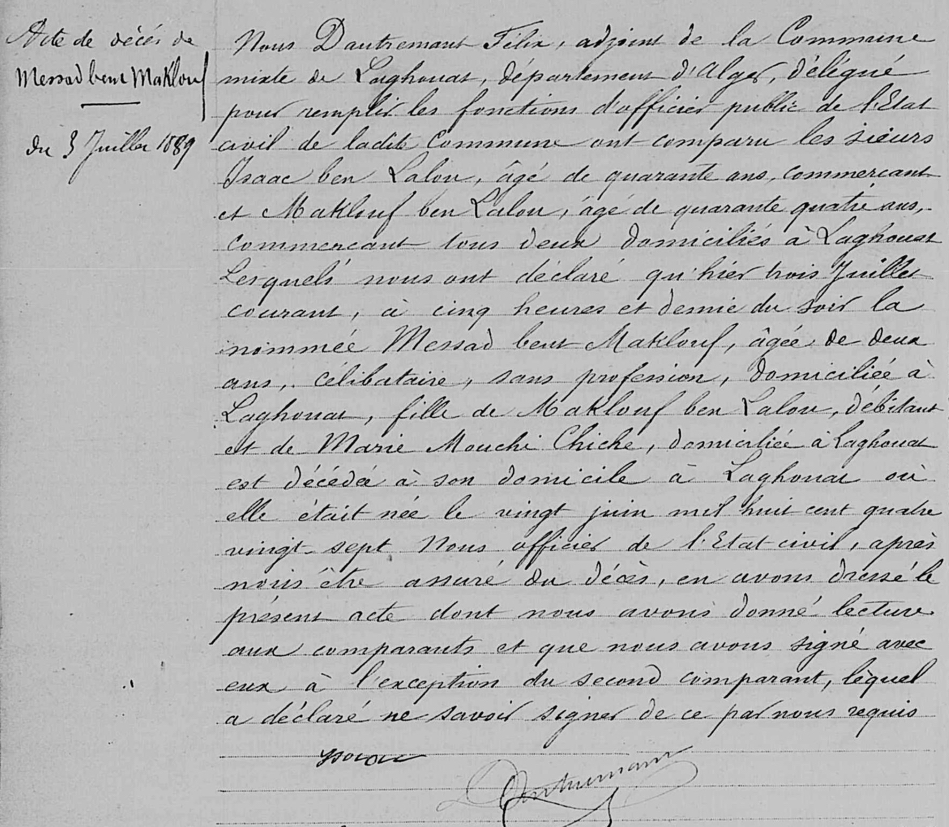 Acte de décés de
Messad bent Maklouf
du 3 Juillet 1889
Nous Dautremant Félix, adjoint de la Commune
mixte de Laghouat, département d'Alger, délégué
pour remplir les fonctions d'officier public de l'Etat
civil de ladite Commune ont comparu les sieurs
Isaac ben Lalou, âgé de quarante ans, commercant
et Maklouf ben Lalou, âgé de quarante quatre ans,
commercant tous deux domiciliés à Laghouat
Lesquels nous ont déclaré qu'hier trois Juillet
courant, à cinq heures et demie du soir la
nommée Messad bent Maklouf, âgée de deux
ans, célibataire, sans profession, domiciliée à
Laghouat, fille de Maklouf ben Lalou, débitant
et de Marie Mouchi Chiche, domiciliée à Laghouat
est décédée à son domicile à Laghouat où
elle était née le vingt juin mil huit cent quatre
vingt-sept Nous officier de l'Etat civil, après
nous être assuré du décès, en avons dressé le
présent acte dont nous avons donné lecture
aux comparants et que nous avons signé avec
eux à l'exception du second comparant, lequel
a déclaré ne savoir signer de ce par nous requis
Dautremant